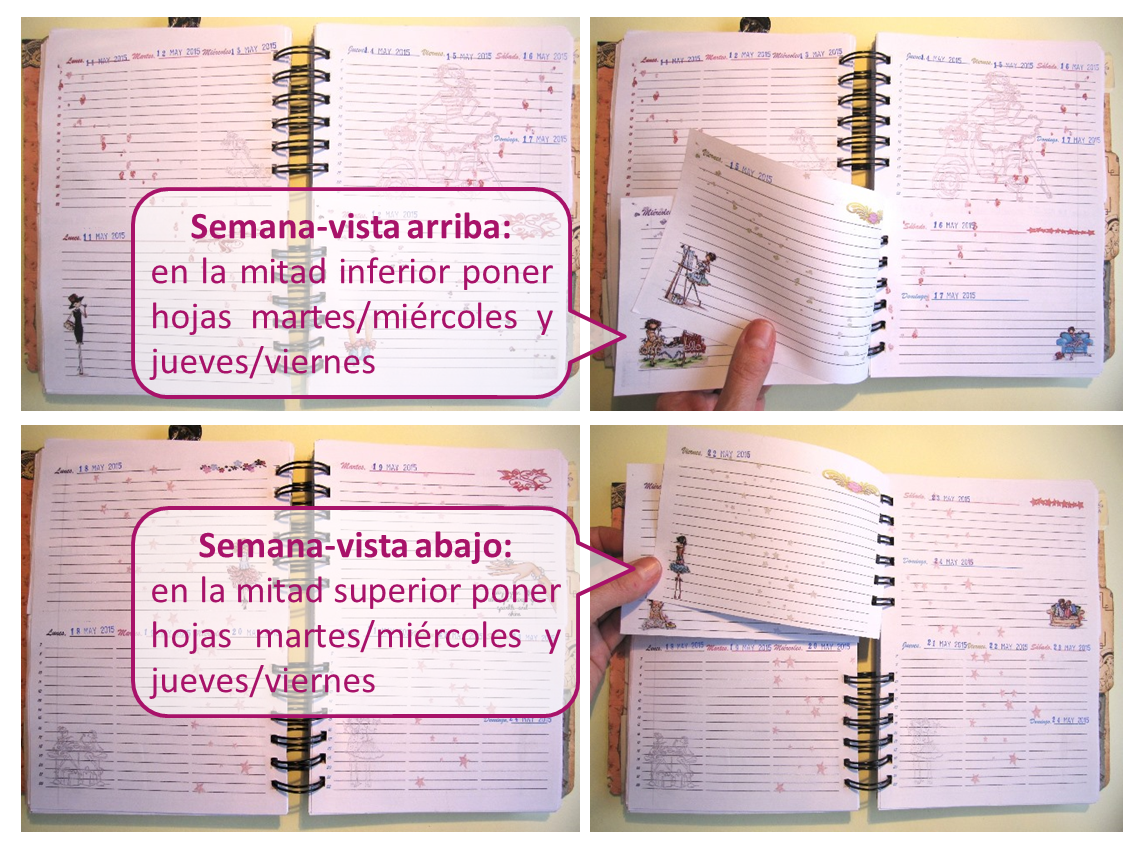 Lunes, 11 MAY 2015 Martes, 12 MAY 2015 Miércoles 13 MAY 2015
Jueves 14 MAY 2015 Viernes, 15 MAY 2015 Sábado, 16 MAY 2015
Domingo, 17 MAY 2015
Lunes, 11 MAY 2015
Semana-vista arriba:
en la mitad inferior poner
hojas martes/miércoles y
jueves/viernes
Lunes, 11 MAY 2015 Martes, 12 MAY 2015 Miércoles 13 MAY 2015
Jueves 14 MAY 2015 Viernes, 15 MAY 2015 Sábado, 16 MAY 2015
Domingo, 17 MAY 2015
Viernes, 15 MAY 2015
Miércoles
Sábado, 16 MAY 2015
Domingo, 17 MAY 2015
Lunes, 18 MAY 2015
Martes, 19 MAY 2015
Semana-vista abajo:
en la mitad superior poner
hojas martes/miércoles y
jueves/viernes
Lunes, 18 MAY 2015
Viernes, 22 MAY 2015
Sábado, 23 MAY 2015
Domingo, 24 MAY 2015
Lunes, 18 MAY 2015 Martes, 19 MAY 2015 Miércoles, 20 MAY 2015
Jueves, 21 MAY 2015 Viernes, 22 MAY 2015 Sábado, 23 MAY 2015
Domingo, 24 MAY 2015